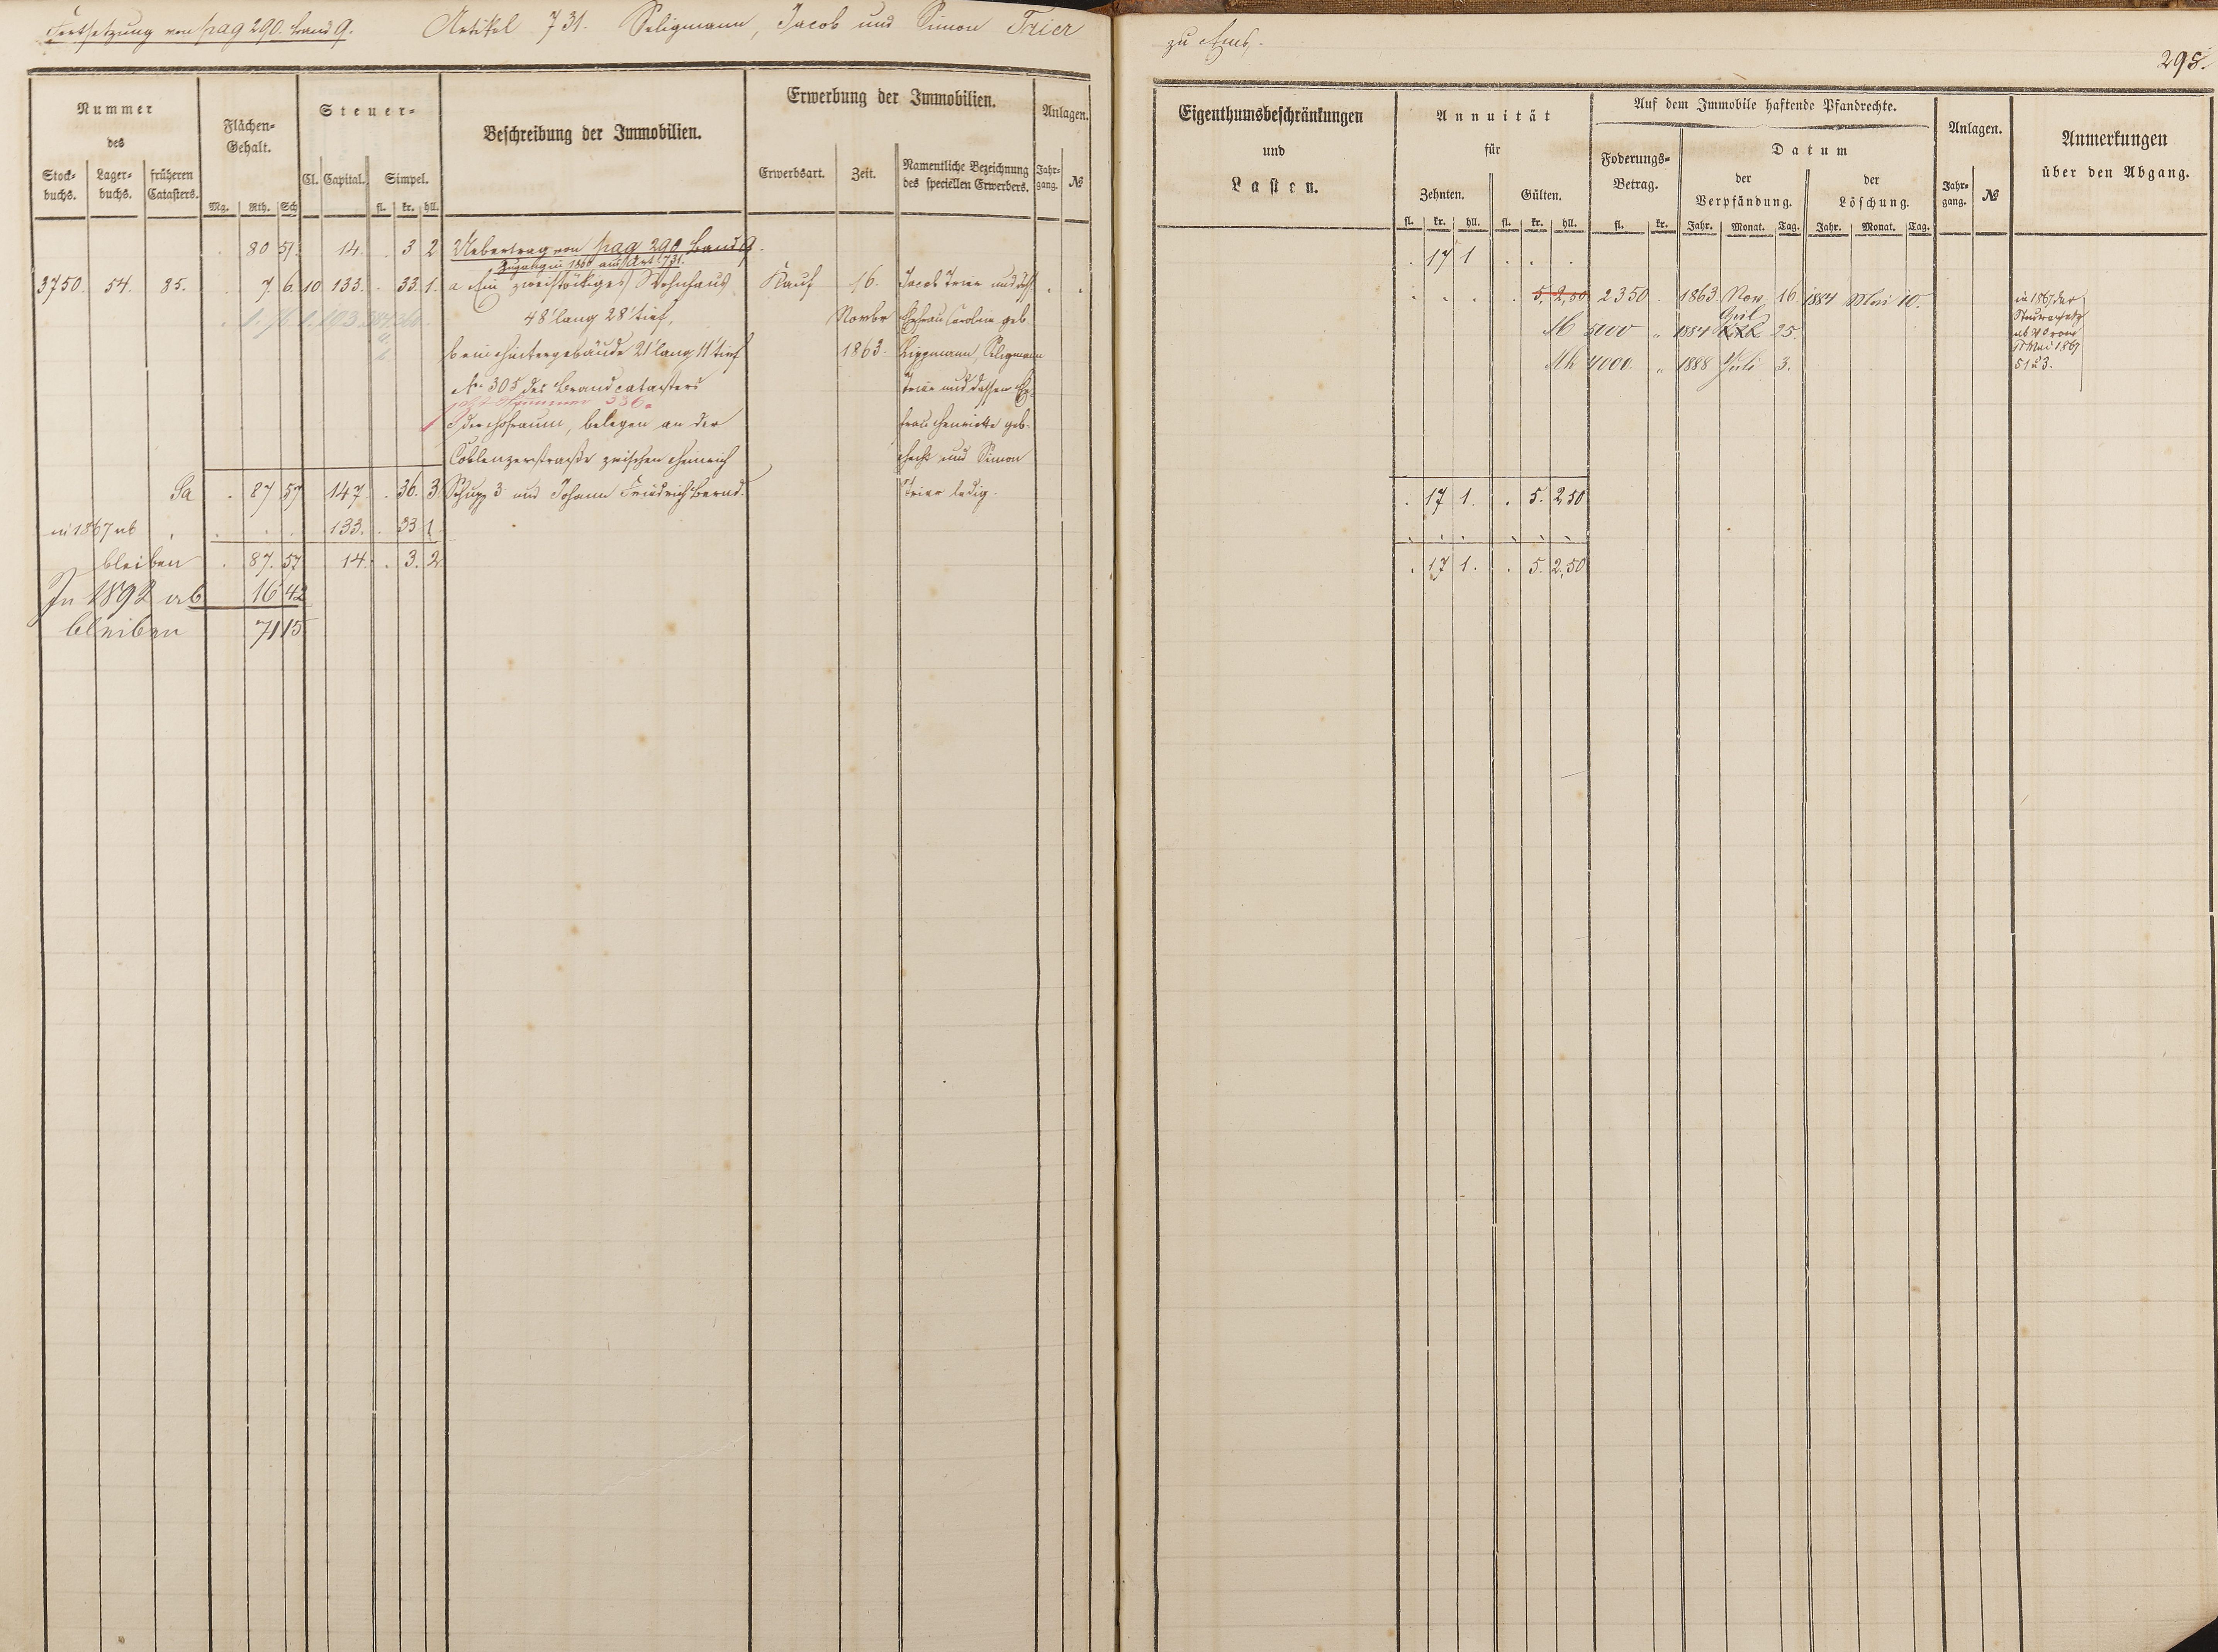 Fortsetzung von pag 290. Band 9. Artikel 731. Seligmann, Jacob und Simon Trier
zu Ems.
295.
Nummer
des
Stock-
buchs.
Lager-
buchs.
früheren
Catasters.
Flächen-
Gehalt.
Mg. Rth. Sch
Steuer-
Cl. Capital. Simpel.
fl. kr. hll.
Beschreibung der Immobilien.
Erwerbung der Immobilien.
Erwerbsart. Zeit.
Namentliche Bezeichnung
des speciellen Erwerbers.
Anlagen.
Jahr-
gang.
№
Eigenthumsbeschränkungen
und
Lasten.
Annuität
für
Zehnten. Gülten.
fl. kr. hll. fl. kr. hll.
Auf dem Immobile haftende Pfandrechte.
Foderungs-
Betrag.
fl. kr.
Datum
der
Verpfändung.
Jahr. Monat. Tag.
der
Löschung.
Jahr. Monat. Tag.
Anlagen.
Jahr-
gang.
№
Anmerkungen
über den Abgang.
80 51 14. 3 2 Uebertrag von pag 290 Band 9.
17 1
3750. 54. 85. 7. 6. 10 133. 33. 1. a Ein zweistöckiges Wohnhaus Kauf 16. Jacob Trier und
5. 2,50 2350 1863 Nov. 16 1884 Mai 10.
48' lang 28' tief, Novbr Ehefrau Caroline geb.
5000 " 1884 April 25.
b ein Hintergebäude 21' lang 11' tief 1863. Lippmann, Seligmann
4000 " 1888 Juli 3.
in 1867 der
Mai 1867
51 u 3.
No 305 des Brandcatasters Trier und dessen Ehe-
336.
c der Hofraum, belegen an der frau Henriette geb.
Coblenzerstraße zwischen Heinrich und Simon
Sa 87 57 147. 36. 3. Schupp 3. und Johann Friedrich Bernd. Trier ledig.
17 1. 5. 2,50
in 1867 ab 133. 33 1
bleiben 87. 57 14. 3. 2
17 1. 5. 2,50
In 1892 ab 16 42
bleiben 71 15